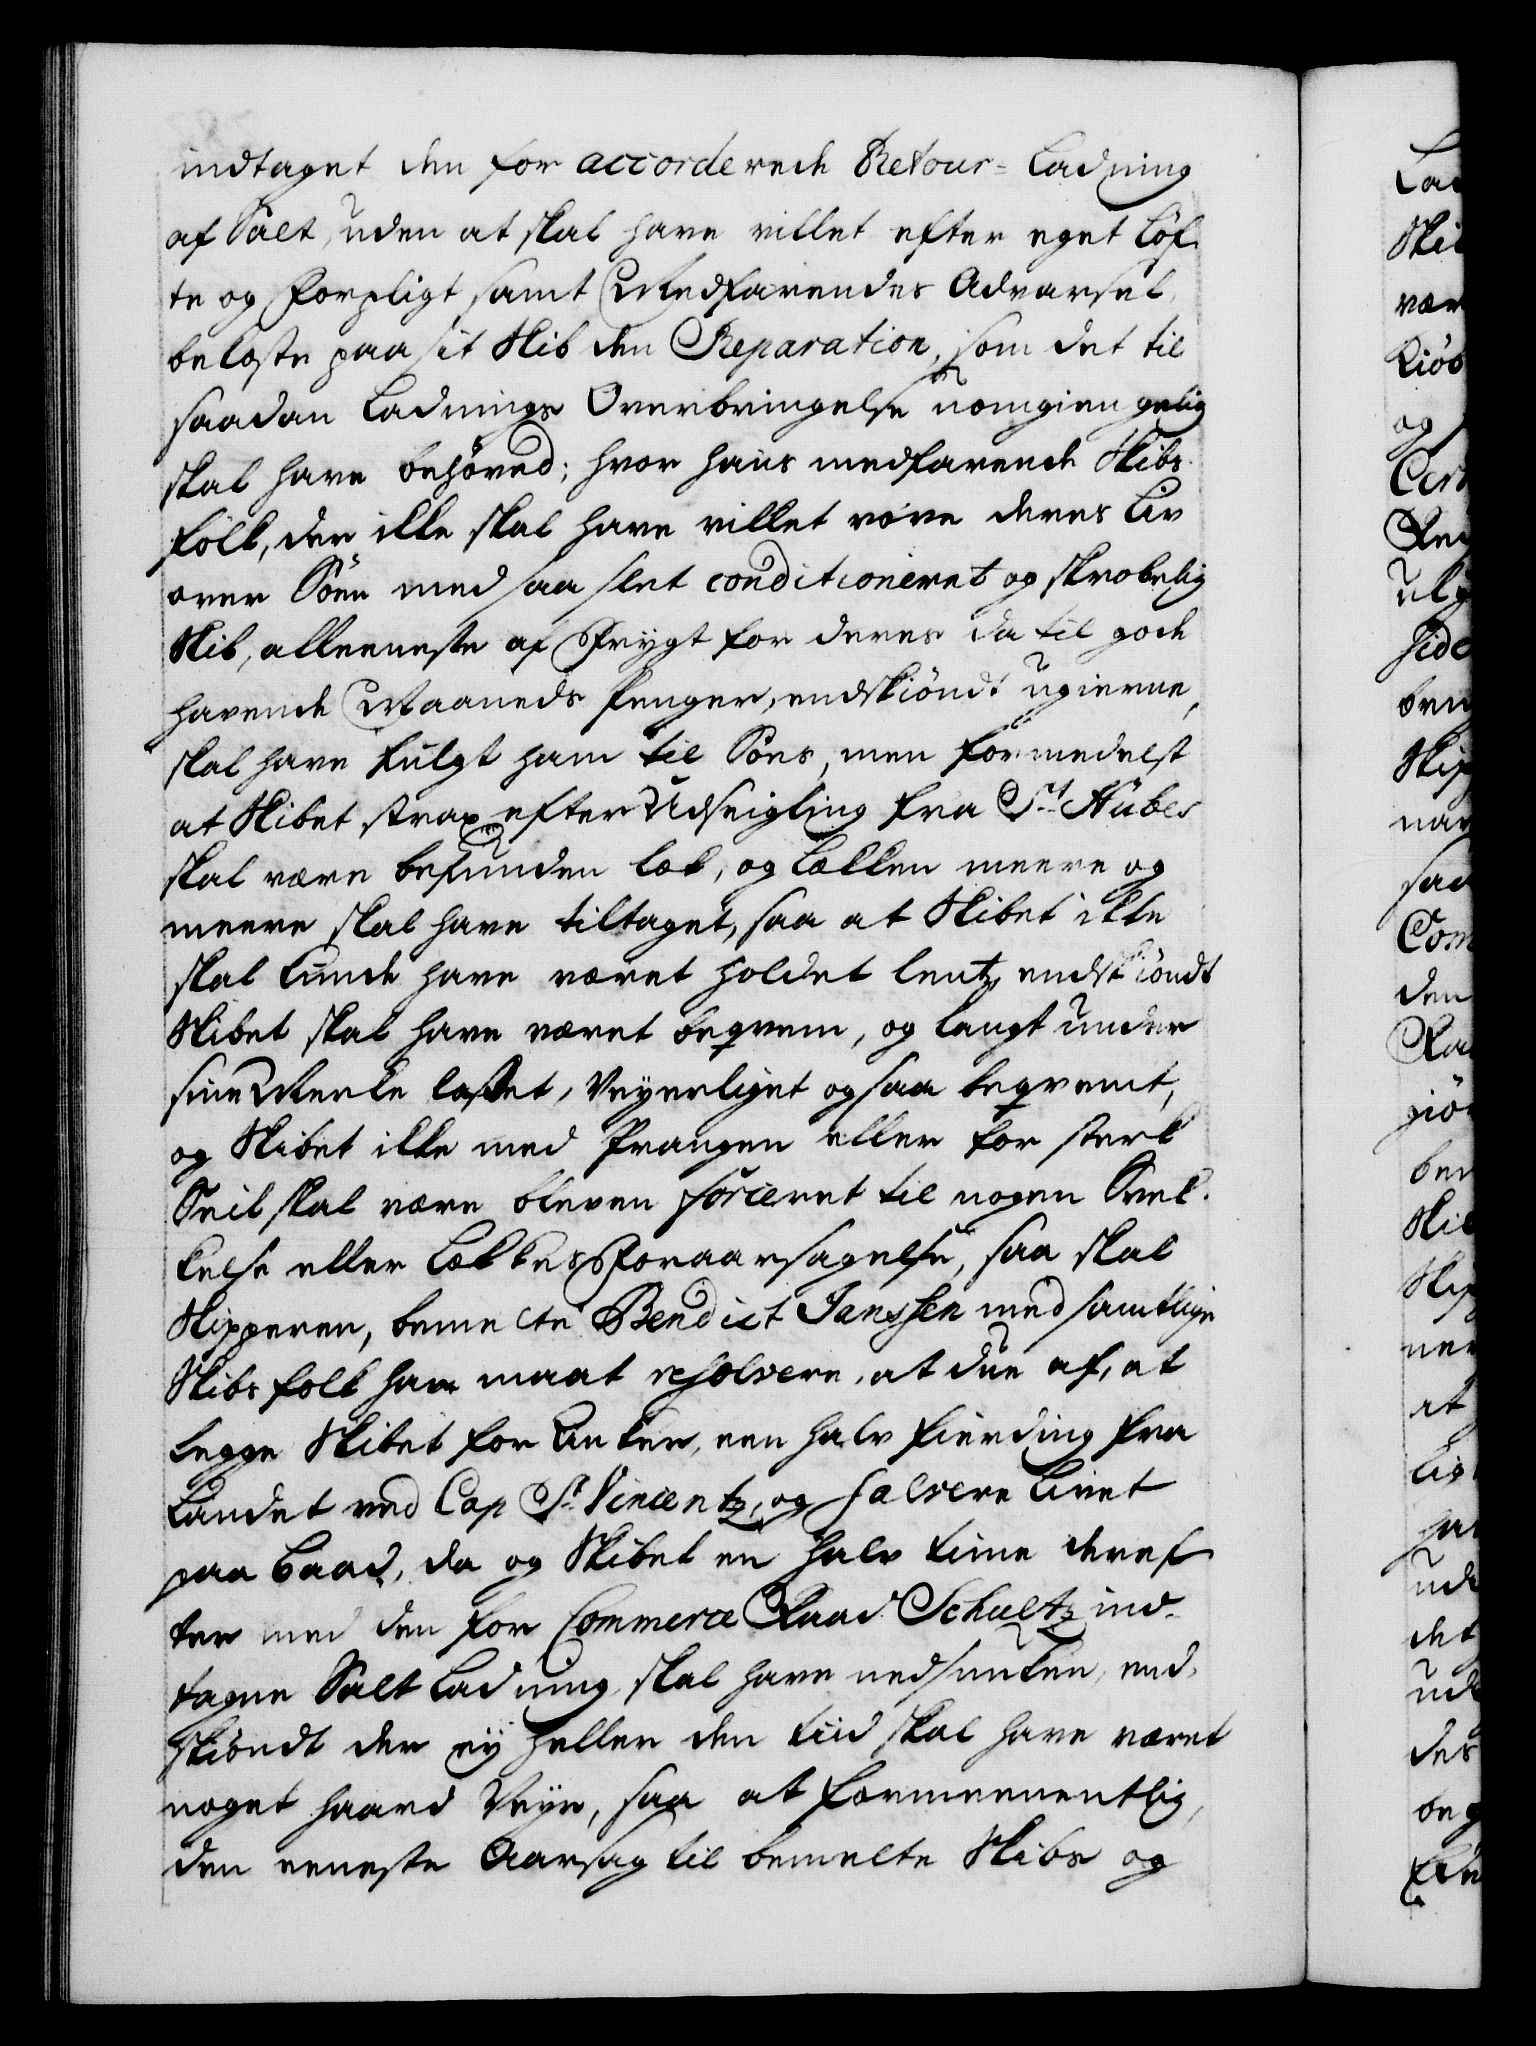 indtaget den for accorderede Retour-Ladning
af Salt, uden at skal have villet efter eget Løf-
te og Forpligt samt Medfarendes Advarsel
bekoste paa sit Skib den Reparation, som det til
saadan Ladnings Overbringelse uomgiengelig
skal have behøved; hvor hans medfarende Skibs-
folk, der ikke skal have villet vove deres Liv
over Søen med saa slet conditioneret og skrøbelig
Skib, alleeneste af Frygt for deres da til gode
havende Maaneds Penger, endskiøndt ugierne,
skal have fulgt ham til Søes, men formedelst
at Skibet strax efter Udseigling fra St. Hübes
skal være befunden læk, og Lækken meere og
meere skal have tiltaget, saa at Skibet ikke
skal kunde have været holdet lentz, endskiøndt
Skibet skal have været beqvem, og langt under
sine Merke lastet, Veyerliget og saa beqvemt,
og Skibet ikke med Prangen eller for sterk
Seil skal være bleven forceret til nogen Svek-
kelse eller Lækkes Foraarsagelse, saa skal
Skipperen, bemelte Bendict Janssen med samtlige
Skibsfolk have maat resolvere, at due af, at
legge Skibet for Anker, een halv Fierding fra
Landet ved Cap St. Vincentz, og salvere Livet
paa Baad, da og Skibet en halv time deref-
ter med den for Commerce Raad Schultz ind-
tagne Salt Ladning skal have nedsunken, end-
skiøndt der ey heller den tiid skal have været
noget haard Veyr, saa at formeenentlig,
den eeneste Aarsag til bemelte Skibs og